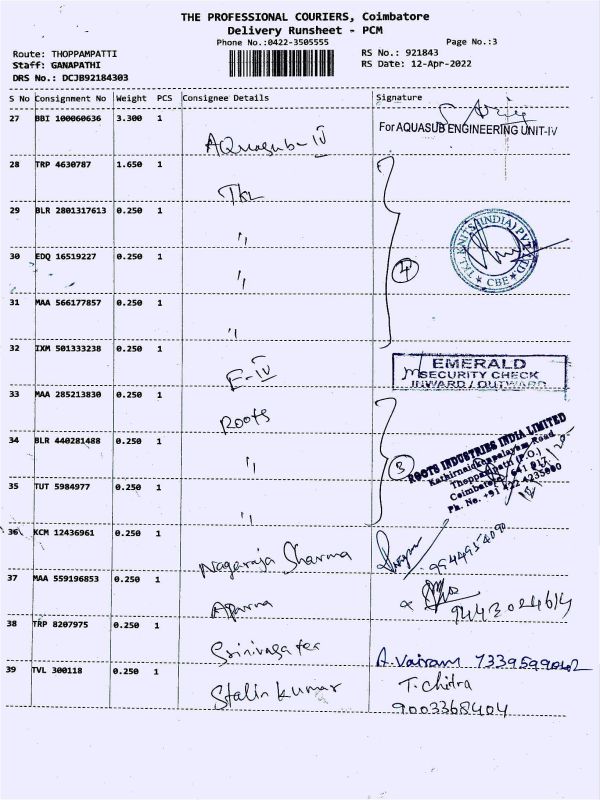 THE PROFESSIONAL COURIERS, Coimbatore
Delivery Runsheet - PCM
Phone No.:0422-3505555
Page No.:3
Route: THOPPAMPATTI
RS No.: 921843
Staff: GANAPATHI
RS Date: 12-Apr-2022
DRS No.: DCJB92184303
S No Consignment No Weight PCS Consignee Details Signature
27 BBI 100060636 3.300 1 AQuasub-IV For AQUASUB ENGINEERING UNIT-IV
28 TRP 4630787 1.650 1 TKL
29 BLR 2801317613 0.250 1 "
30 EDQ 16519227 0.250 1 " 4
TKL KNITS (INDIA) PVT LTD
* CBE *
31 MAA 566177857 0.250 1 "
32 IXM 501333238 0.250 1 E-IV
EMERALD
SECURITY CHECK
INWARD / OUTWARD
33 MAA 285213830 0.250 1 Roots
34 BLR 440281488 0.250 1 " 3
ROOTS INDUSTRIES INDIA LIMITED
Thoppampatti (P.O.)
Coimbatore 641 017.
Ph. No. +91 422 4235000
35 TUT 5984977 0.250 1 "
36 KCM 12436961 0.250 1 Nagaraja Sharma 9944954090
37 MAA 559196853 0.250 1 Aparna 9443024614
38 TRP 8207975 0.250 1 A. Vairam
39 TVL 300118 0.250 1 Stalin kumar T. Chitra
9003368404